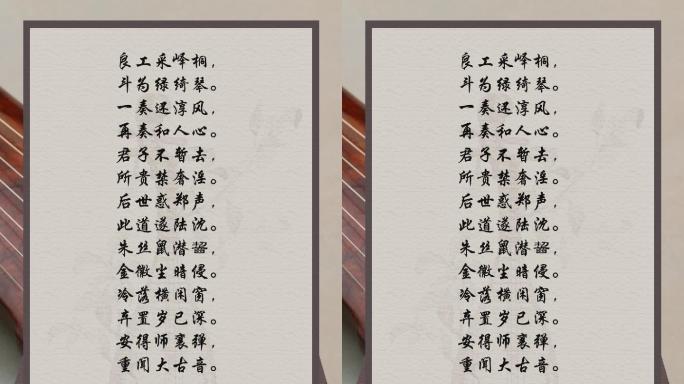 良工采峄桐，
斗为绿绮琴。
一奏还淳风，
再奏和人心。
君子不暂去，
所贵禁奢淫。
后世惑郑声，
此道遂陆沈。
朱丝鼠潜齧，
金徽尘暗侵。
冷落横闲窗，
弃置岁已深。
安得师襄弹，
重闻大古音。
良工采峄桐，
斗为绿绮琴。
一奏还淳风，
再奏和人心。
君子不暂去，
所贵禁奢淫。
后世惑郑声，
此道遂陆沈。
朱丝鼠潜齧，
金徽尘暗侵。
冷落横闲窗，
弃置岁已深。
安得师襄弹，
重闻大古音。